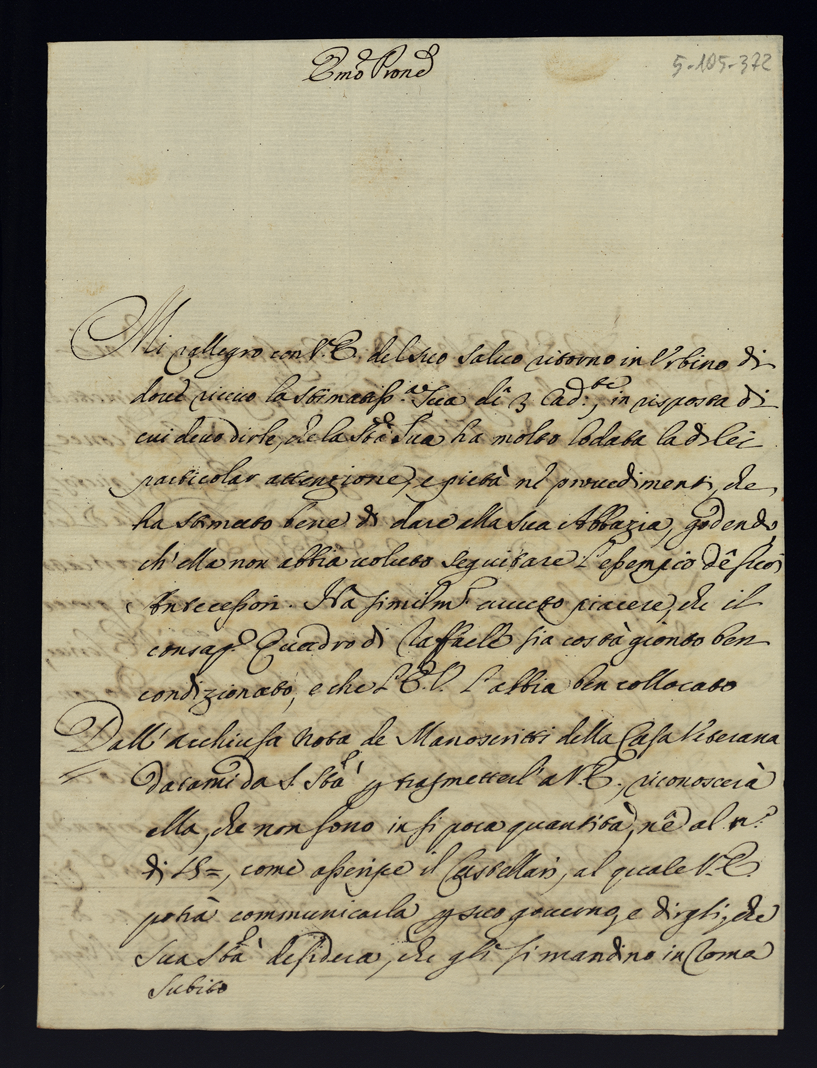 Emo Prone
5-105-372
Mi rallegro con V. E. del suo salvo ritorno in Urbino di
dove ricevo la stimatiss.a Sua di 3 Cad.te, in risposta di
cui devo dirle, che la Stà Sua ha molto lodata la di lei
particolar attenzione, e pietà ne provedimenti, che
ha stimato bene di dare alla sua Abbazia, godendo
ch'ella non abbia voluto seguitare l'essempio de suoi
Antecessori. Ha similmte avuto piacere, che il
consap.o Quadro di Raffaelle sia costà gionto ben
condizionato, e che L'E. V. L'abbia ben collocato
Dall'acchiusa Nota de Manoscritti della Casa Veterana
datami da S. Stà p trasmetterl'a V. E., riconoscerà
ella, che non sono in sì poca quantità, nè al n.o
di 15=, come asserisce il Castellari, al quale V. E.
potrà communicarla p suo governo, e dirgli, che
Sua Stà desidera, che gli si mandino in Roma
subito